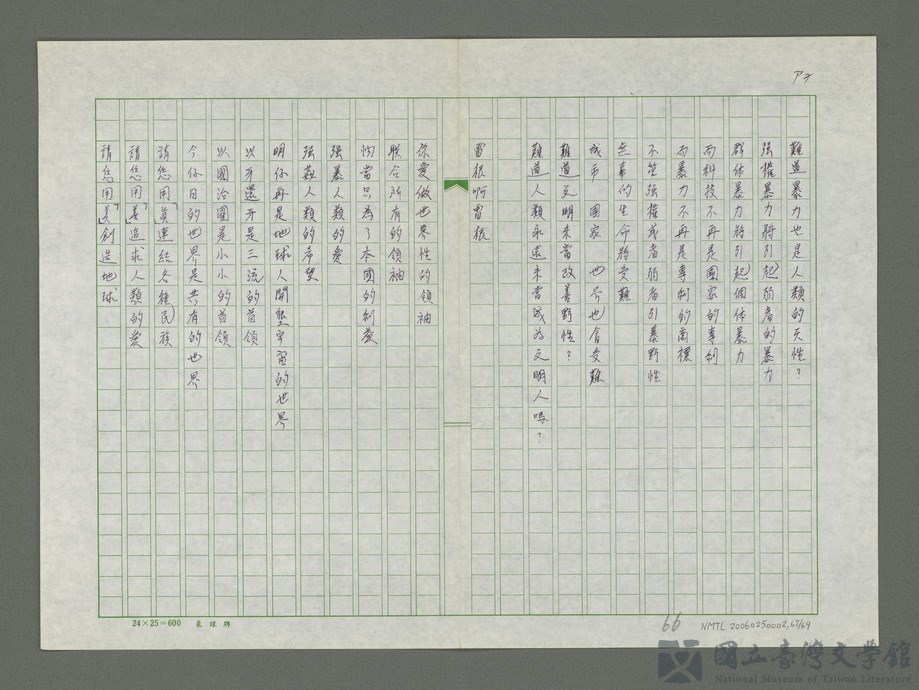 P7
難道暴力也是人類的天性？
强權暴力將引起弱者的暴力
群体暴力將引起個体暴力
而科技不再是國家的專利
而暴力不再是專制的商標
不管强權或者弱者引暴野性
無辜的生命將受難
城市 國家 世界也會受難
難道文明未當改善野性？
難道人類永遠未當成為文明人嗎？
雷根啊雷根
你愛做世界性的領袖
联合所有的領袖
怕當只為了本國的利益
强暴人類的愛
强姦人類的希望
明仔再是地球人開墾宇宙的世界
以牙還牙是三流的首領
以國治國是小小的首領
今仔日的世界是共有的世界
請您用「真」連結各種民族
請您用「善」追求人類的愛
請您用「美」創造地球
24×25=600
66
NMTL 20060250002,67/69
國立臺灣文學館
National Museum of Taiwan Literature